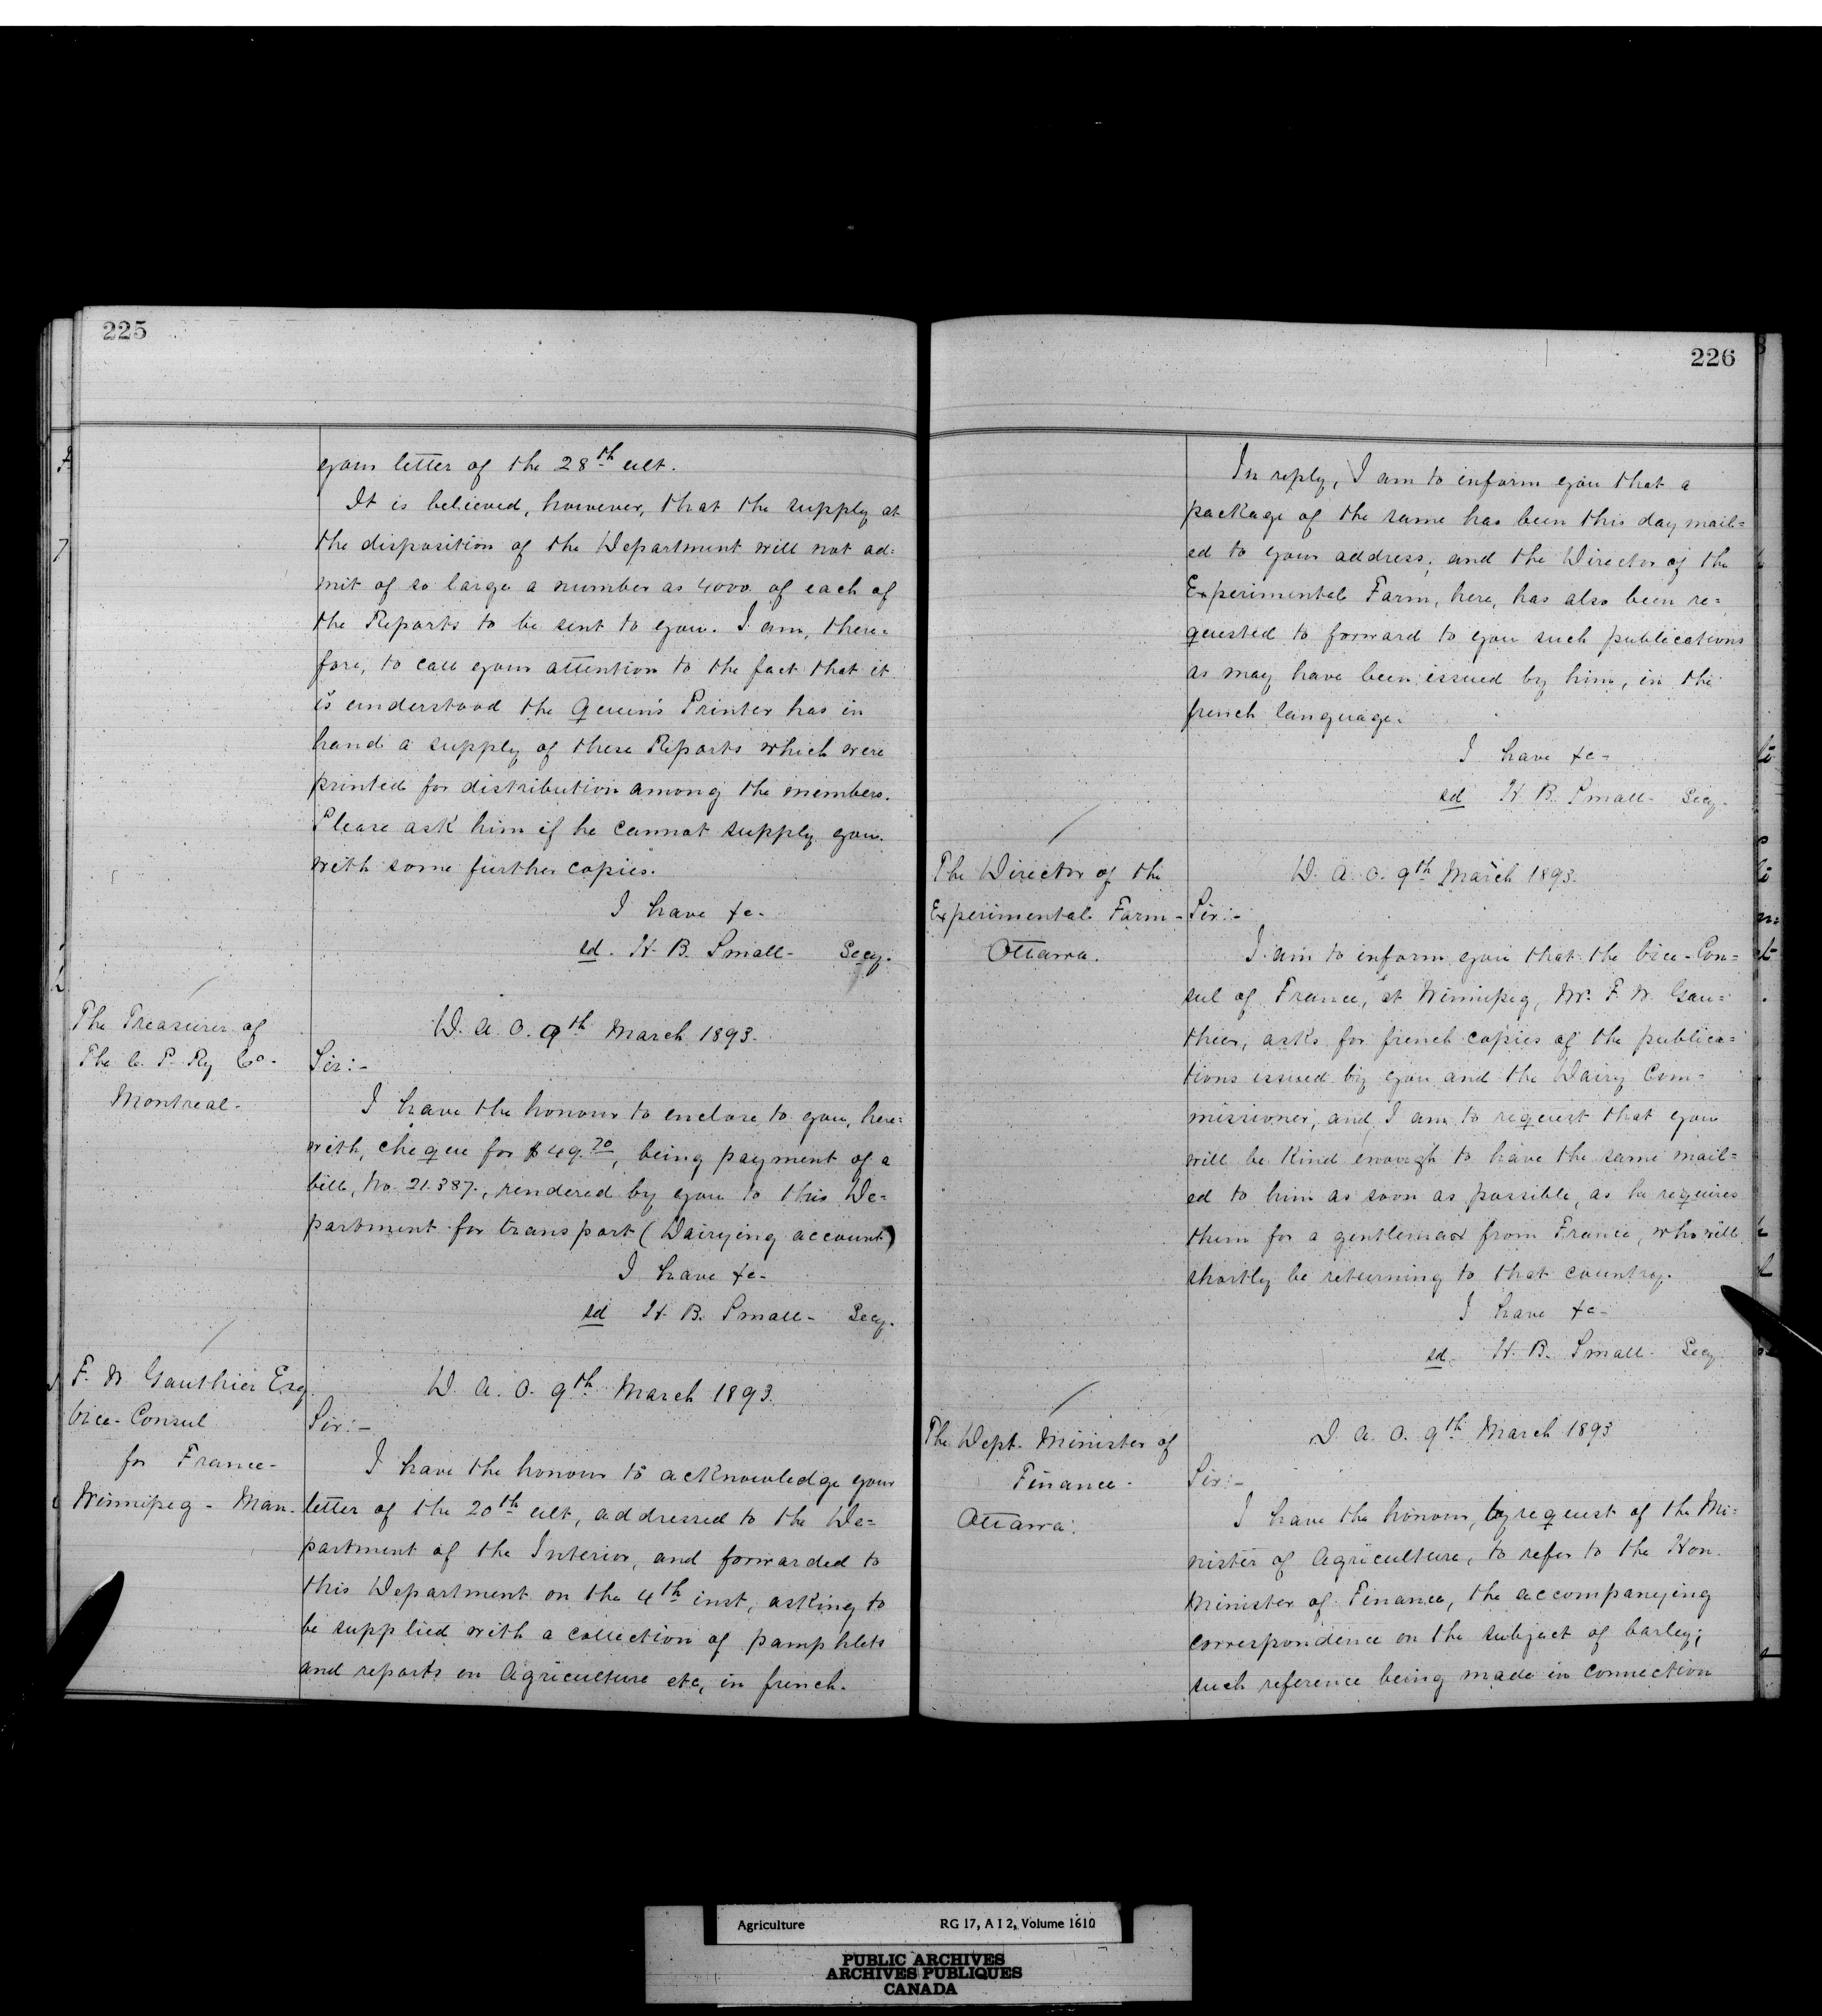 225
your letter of the 28th ult.
It is believed, however, that the supply at
the disposition of the Department will not ad=
mit of so large a number as 4000 of each of
the Reports to be sent to you. I am, there=
fore, to call your attention to the fact that it
is understood the Queen's Printer has in
hand a supply of these Reports which were
printed for distribution among the members.
Please ask him if he cannot supply you
with some further copies.
I have &c-
sd. H. B. Small- Secy.
The Treasurer of
The C. P. Ry Co-
Montreal-
D. A. O. 9th March 1893.
Sir:-
I have the honour to enclose to you, here=
with, cheque for $49.70, being payment of a
bill, No. 21.387., rendered by you to this De=
partment for transport (Dairying account)
I have &c-
sd H. B. Small- Secy.
F. W. Gauthier Esq.
Vice-Consul
for France-
Winnipeg - Man.
D. A. O. 9th March 1893.
Sir:-
I have the honour to acknowledge your
letter of the 20th ult, addressed to the De=
partment of the Interior, and forwarded to
this Department on the 4th inst, asking to
be supplied with a collection of pamphlets
and reports on Agriculture etc, in french.
226
In reply, I am to inform you that a
package of the same has been this day mail=
ed to your address, and the Director of the
Experimental Farm, here, has also been re=
quested to forward to you such publications
as may have been issued by him, in the
french language.
I have &c-
sd H. B. Small- Secy-
The Director of the
Experimental Farm-
Ottawa.
D. A. O. 9th March 1893.
Sir:-
I am to inform you that the Vice-Con=
sul of France, at Winnipeg, Mr. F. W. Gau=
thier, asks for french copies of the publica=
tions issued by you and the Dairy Com=
missioner, and I am to request that you
will be kind enough to have the same mail=
ed to him as soon as possible, as he requires
them for a gentleman from France, who will
shortly be returning to that country.
I have &c-
sd. H. B. Small- Secy
The Dept. Minister of
Finance-
Ottawa.
D. A. O. 9th March 1893
Sir:-
I have the honour, by request of the Mi=
nister of Agriculture, to refer to the Hon.
Minister of Finance, the accompanying
correspondence on the subject of barley;
such reference being made in connection
Agriculture RG 17, A I 2, Volume 1610
PUBLIC ARCHIVES
ARCHIVES PUBLIQUES
CANADA